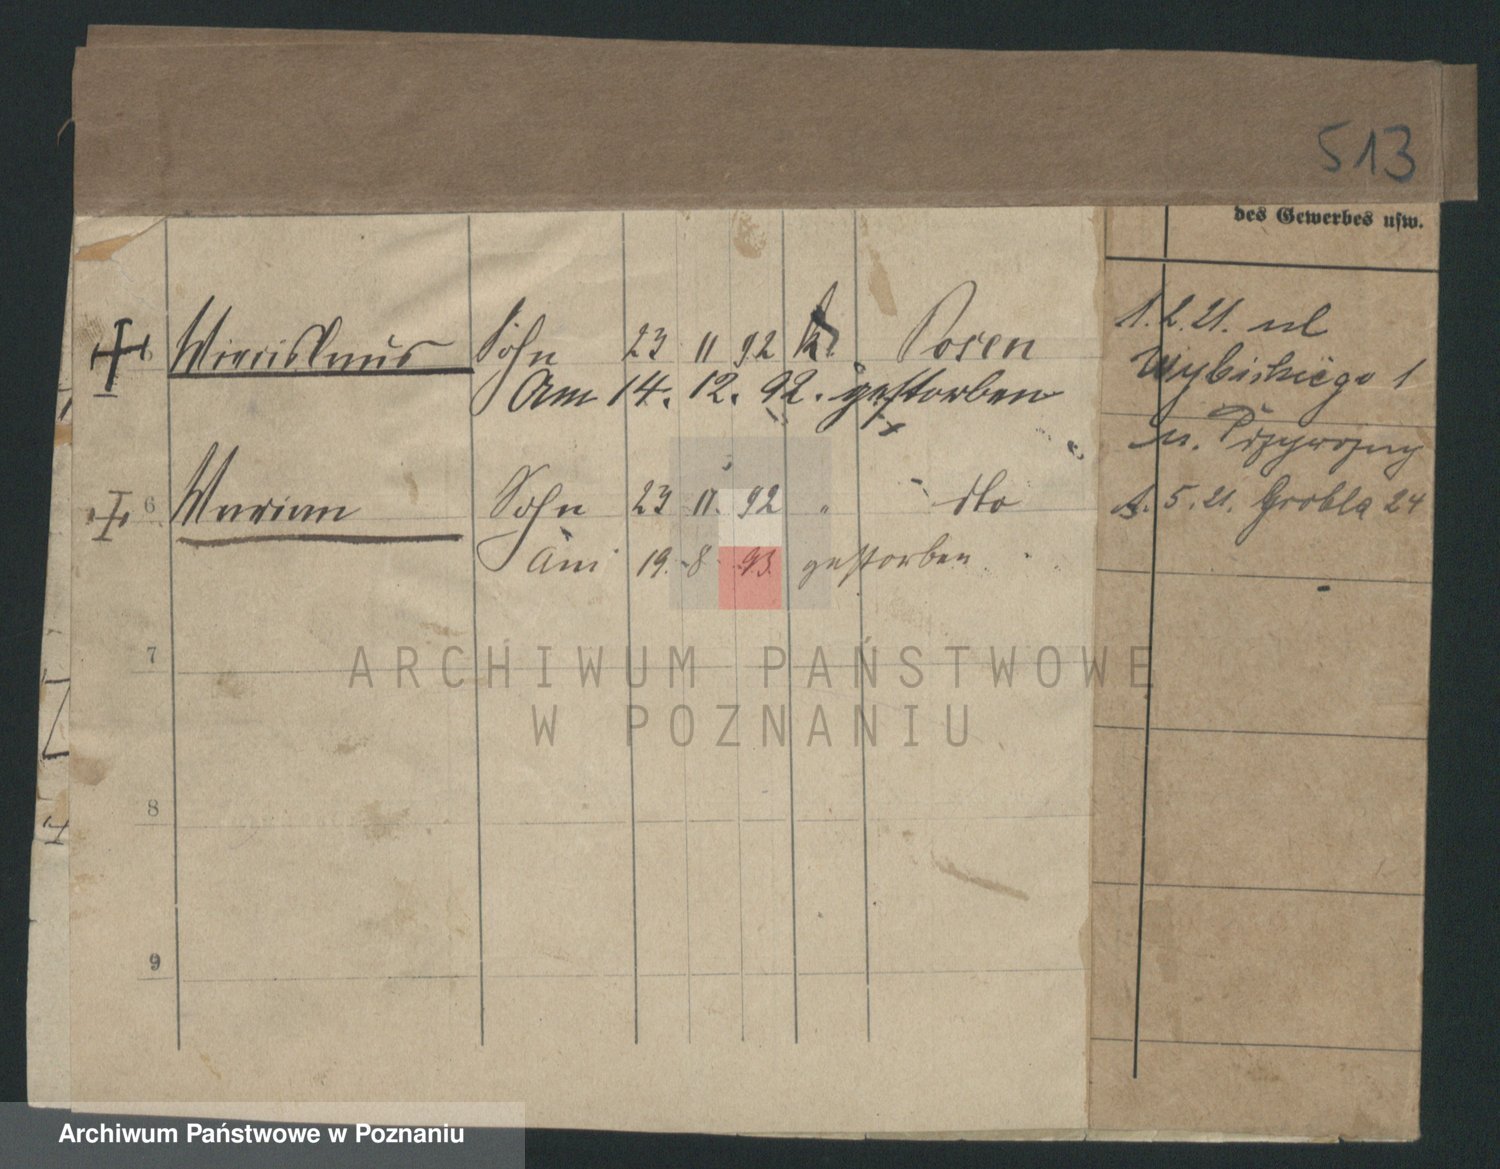 513
des Gewerbes usw.
Sohn 23 11 92 k. Posen
Am 14. 12. 92. gestorben
6 Marian Sohn 23 11. 92 " dto
Am 19. 8. 93. gestorben
1. 2. 21. ul
Wybickiego 1
u. Przywozny
1. 5. 21. Grobla 24
7
8
9
ARCHIWUM PAŃSTWOWE
W POZNANIU
Archiwum Państwowe w Poznaniu